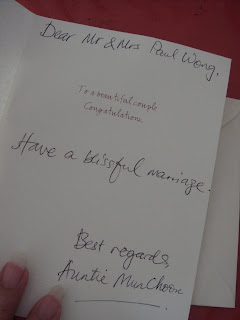 Dear Mr & Mrs Paul Wong,
To a beautiful couple
Congratulations.
Have a blissful marriage.
Best regards,
Auntie Mun Choon